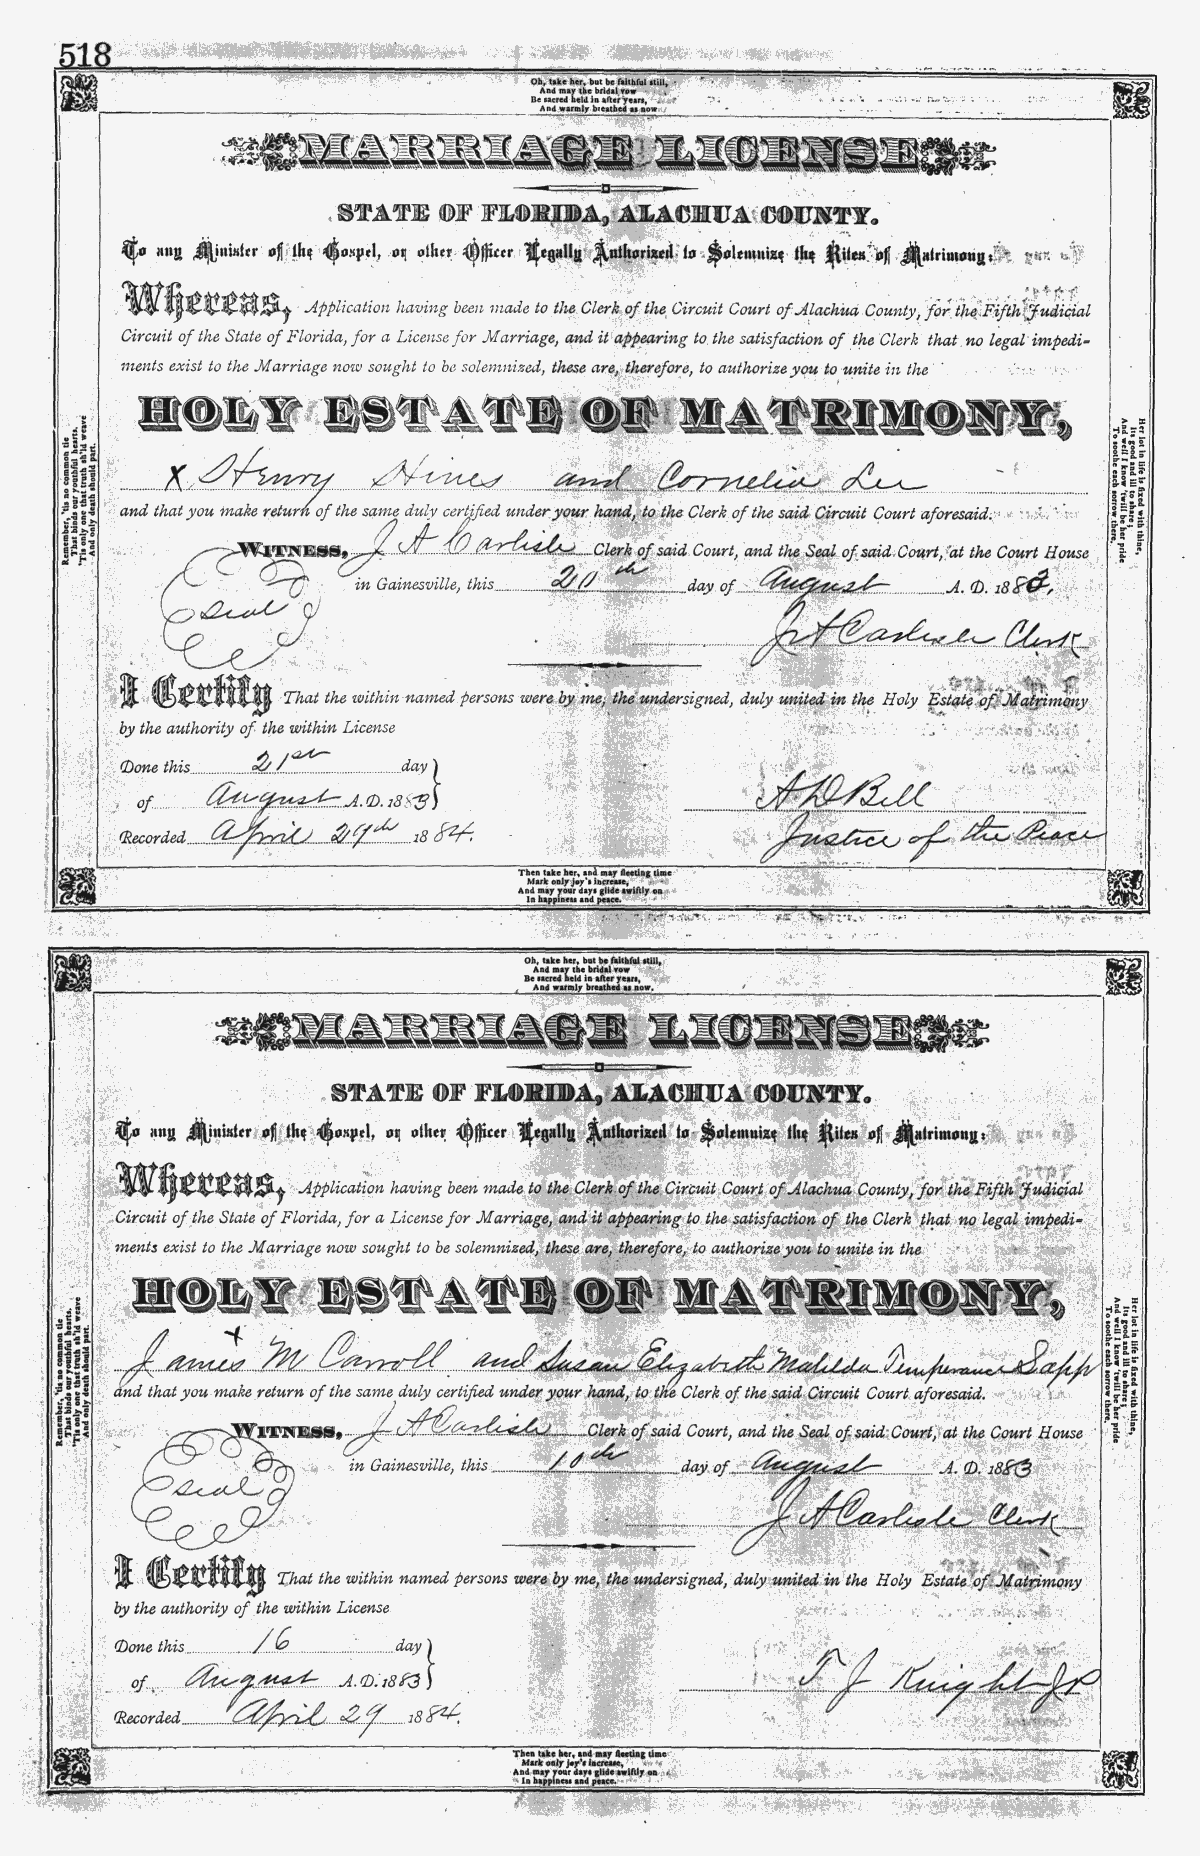 518
Oh, take her, but be faithful still,
And may the bridal vow
Be sacred held in after years,
And warmly breathed as now
MARRIAGE LICENSE
STATE OF FLORIDA, ALACHUA COUNTY.
To any Minister of the Gospel, or other Officer Legally Authorized to Solemnize the Rites of Matrimony:
Whereas, Application having been made to the Clerk of the Circuit Court of Alachua County, for the Fifth Judicial
Circuit of the State of Florida, for a License for Marriage, and it appearing to the satisfaction of the Clerk that no legal impedi-
ments exist to the Marriage now sought to be solemnized, these are, therefore, to authorize you to unite in the
HOLY ESTATE OF MATRIMONY,
x Henry Hines and Cornelia Lee
and that you make return of the same duly certified under your hand, to the Clerk of the said Circuit Court aforesaid.
WITNESS, J A Carlisle Clerk of said Court, and the Seal of said Court, at the Court House
in Gainesville, this 20th day of August A. D. 1883,
Seal
J A Carlisle Clerk
I Certify That the within named persons were by me, the undersigned, duly united in the Holy Estate of Matrimony
by the authority of the within License
Done this 21st day
of August A.D. 1883
A D Bell
Recorded April 29th 1884.
Justice of the Peace
Remember, 'tis no common tie
That binds our youthful hearts,
'Tis only one that truth sh'ld weave
And only death should part.
Her lot in life is fixed with thine,
Its good and ill to share;
And well I know 'twill be her pride
To soothe each sorrow there,
Then take her, and may fleeting time
Mark only joy's increase,
And may your days glide swiftly on
In happiness and peace.
Oh, take her, but be faithful still,
And may the bridal vow
Be sacred held in after years,
And warmly breathed as now.
MARRIAGE LICENSE
STATE OF FLORIDA, ALACHUA COUNTY.
To any Minister of the Gospel, or other Officer Legally Authorized to Solemnize the Rites of Matrimony:
Whereas, Application having been made to the Clerk of the Circuit Court of Alachua County, for the Fifth Judicial
Circuit of the State of Florida, for a License for Marriage, and it appearing to the satisfaction of the Clerk that no legal impedi-
ments exist to the Marriage now sought to be solemnized, these are, therefore, to authorize you to unite in the
HOLY ESTATE OF MATRIMONY,
x
James M Carroll and Susan Elizabeth Matilda Temperance Sapp
and that you make return of the same duly certified under your hand, to the Clerk of the said Circuit Court aforesaid.
WITNESS, J A Carlisle Clerk of said Court, and the Seal of said Court, at the Court House
in Gainesville, this 10th day of August A. D. 1883
Seal
J A Carlisle Clerk
I Certify That the within named persons were by me, the undersigned, duly united in the Holy Estate of Matrimony
by the authority of the within License
Done this 16 day
of August A.D. 1883
T J Knight JP
Recorded April 29 1884.
Remember, 'tis no common tie
That binds our youthful hearts,
'Tis only one that truth sh'ld weave
And only death should part.
Her lot in life is fixed with thine,
Its good and ill to share;
And well I know 'twill be her pride
To soothe each sorrow there,
Then take her, and may fleeting time
Mark only joy's increase,
And may your days glide swiftly on
In happiness and peace.